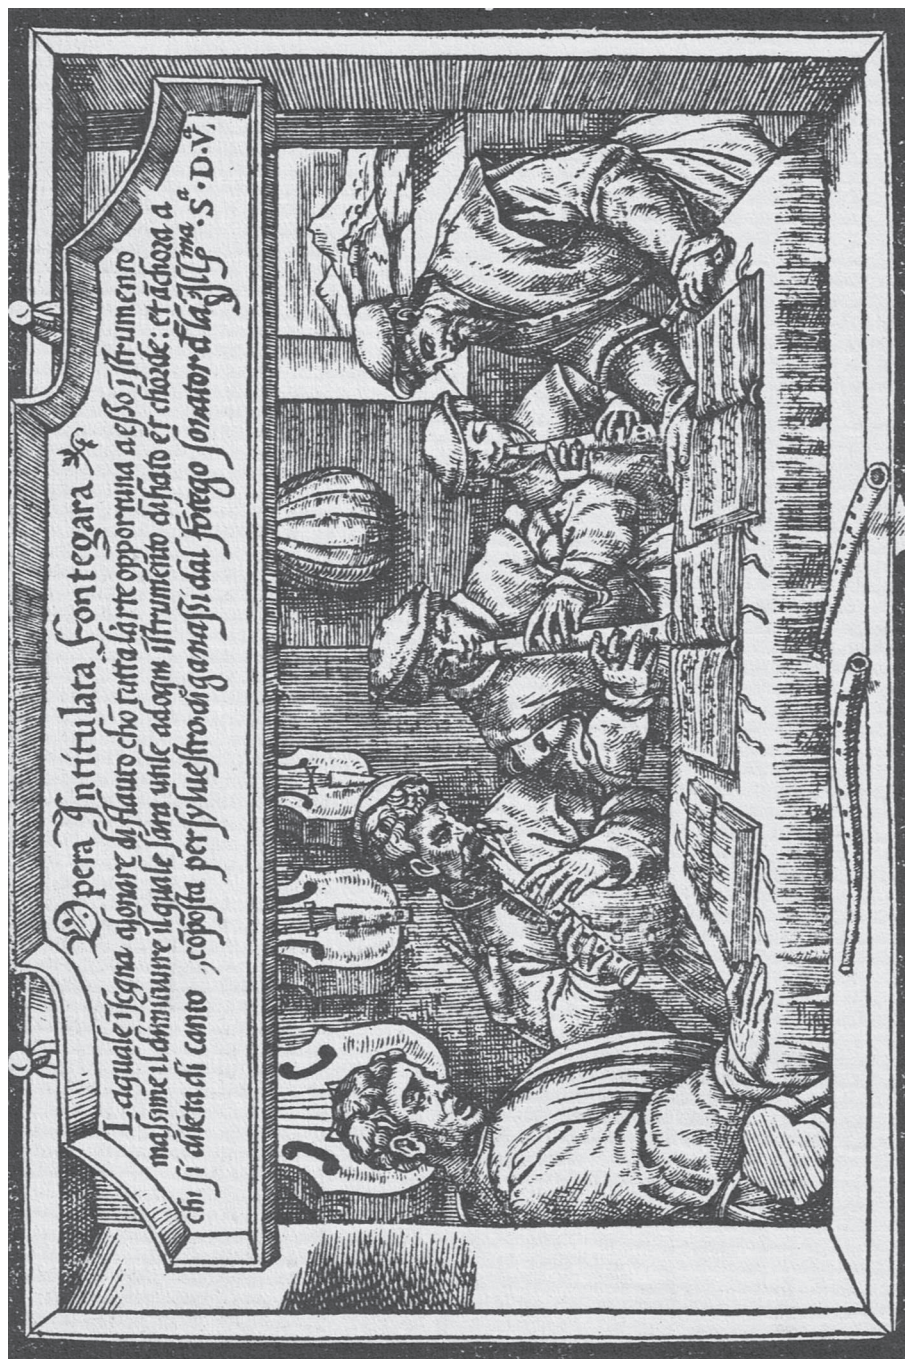 Opera Intitulata Fontegara
Laquale ĩsegna a sonare di flauto chõ tutta l'arte opportuna a esso ĩstrumento
massime il diminuire il quale sara utile ad ogni istrumẽto di fiato et chorde: et ãchora a
chi si dileta di canto, cõposta per sylvestro di ganassi dal fõtego sonator dłłaᵃ Illᵐᵃ Sᵃ. D. Vᵃ.